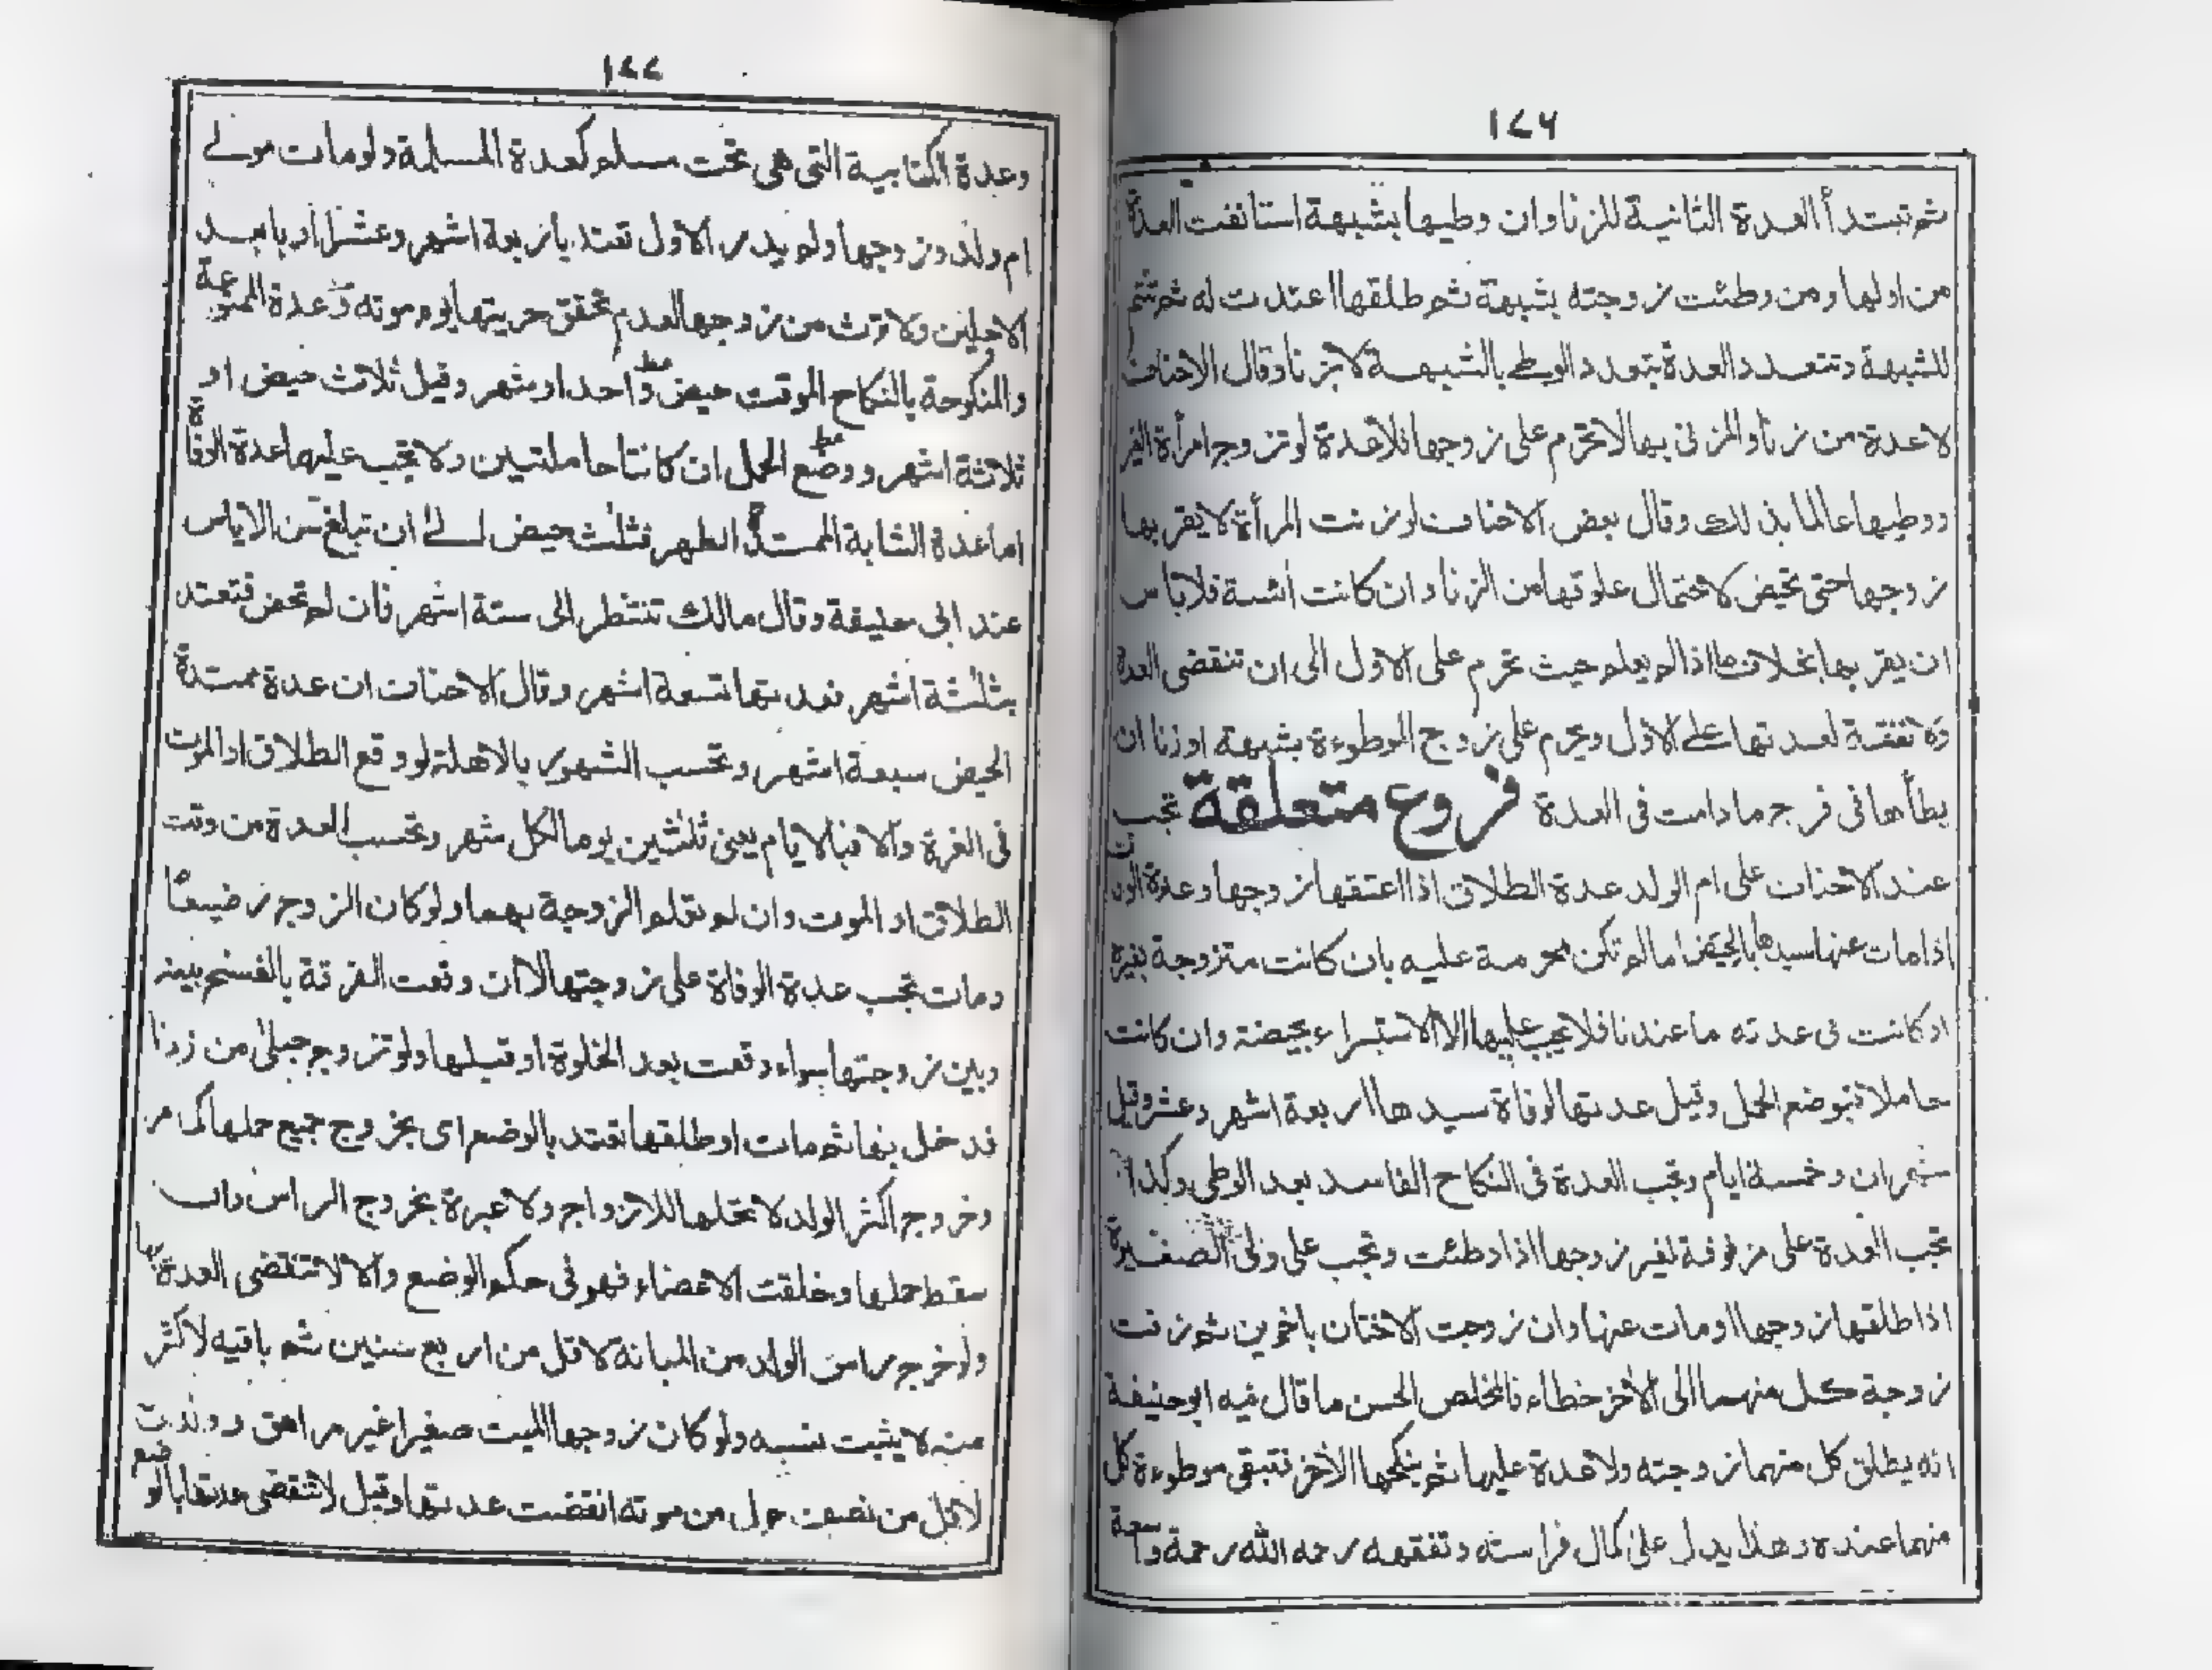 ١٧٦
ثم تبتدأ العدة الثانية للزنا وان وطيها بشبهة استانفت العدة
من اولها ومن وطئت زوجته بشبهة ثم طلقها اعتدت له ثم تتم
للشبهة وتتعدد العدة بتعدد الوطى بالشبهة لا بزنا وقال الاحناف
لا عدة من زنا والمزنى بها لا تحرم على زوجها فلا عدة لو تزوج امرأة الغير
ووطيها عالما بذلك وقال بعض الاحناف لو زنت المرأة لا يقربها
زوجها حتى تحيض لاحتمال علوقها من الزنا وان كانت آئسة فلا باس
ان يقربها بخلاف ما اذا لم يعلم حيث تحرم على الاول الى ان تنقضى العدة
ولا نفقة لعدتها على الاول ويحرم على زوج الموطوءة بشبهة او زنا ان
يطأها فى فرج ما دامت فى العدة فروع متعلقة تجب
عند الاحناف على ام الولد عدة الطلاق اذا اعتقها زوجها وعدة الوفات
اذا مات عنها سيدها بالحيض ما لم تكن محرمة عليه بان كانت متزوجة بغيره
او كانت فى عدته ما عندنا فلا يجب عليها الا الاستبراء بحيضة وان كانت
حاملا فبوضع الحمل وقيل عدتها لوفاة سيدها اربعة اشهر وعشر وقيل
شهران وخمسة ايام وتجب العدة فى النكاح الفاسد بعد الوطى وكذا
تجب العدة على مزفوفة لغير زوجها اذا وطئت وتجب على ولى الصغيرة
اذا طلقها زوجها او مات عنها وان زوجت الاختان باخوين ثم زفت
زوجة كل منهما الى الآخر خطاء فالمخلص الحسن ما قال فيه ابو حنيفة
انه يطلق كل منهما زوجته ولا عدة عليها ثم ينكحها الآخر فتبقى موطوءة كل
منهما عنده وهذا يدل على كمال فراسته وتفقهه رحمه الله رحمة واسعة
١٧٧
وعدة الكتابية التى هى تحت مسلم كعدة المسلمة ولو مات مولى
ام ولد وزوجها ولم يدر الاول تعتد باربعة اشهر وعشرا او بابعد
الاجلين ولا ترث من زوجها لعدم تحقق حريتها يوم موته وعدة الممتوعة
والمنكوحة بالنكاح الموقت حيض واحد او شهر وقيل ثلاث حيض او
ثلاثة اشهر ووضع الحمل ان كانتا حاملتين ولا تجب عليها عدة الوفاة
اما عدة الشابة الممتدة الطهر فثلث حيض الى ان تبلغ سن الاياس
عند ابى حنيفة وقال مالك تنتظر الى ستة اشهر فان لم تحض فتعتد
بثلثة اشهر فعدتها تسعة اشهر وقال الاحناف ان عدة ممتدة
الحيض سبعة اشهر وتحسب الشهور بالاهلة لو وقع الطلاق او الموت
فى الغرة والا فبالايام يعنى ثلثين يوما لكل شهر وتحسب العدة من وقت
الطلاق او الموت وان لم تعلم الزوجة بهما ولو كان الزوج رضيعًا
ومات تجب عدة الوفاة على زوجتها الا ان وقعت الفرقة بالفسخ بينه
وبين زوجتها سواء وقعت بعد الخلوة او قبلها ولو تزوج حبلى من زنا
فدخل بها ثم مات او طلقها تعتد بالوضع اى بخروج جميع حملها كما مر
وخروج اكثر الولد لا تحلها للازواج ولا عبرة بخروج الراس وان
سقط حملها وخلقت الاعضاء فهو فى حكم الوضع والا لا تنقضى العدة بها
ولو خرج راس الولد من المبانة لاقل من اربع سنين ثم باقيه لاكثر
منه لا يثبت نسبه ولو كان زوجها الميت صغيرا غير مراهق وولدت
لاقل من نصف حول من موته انقضت عدتها وقيل لا تنقضى عدتها بالوضع